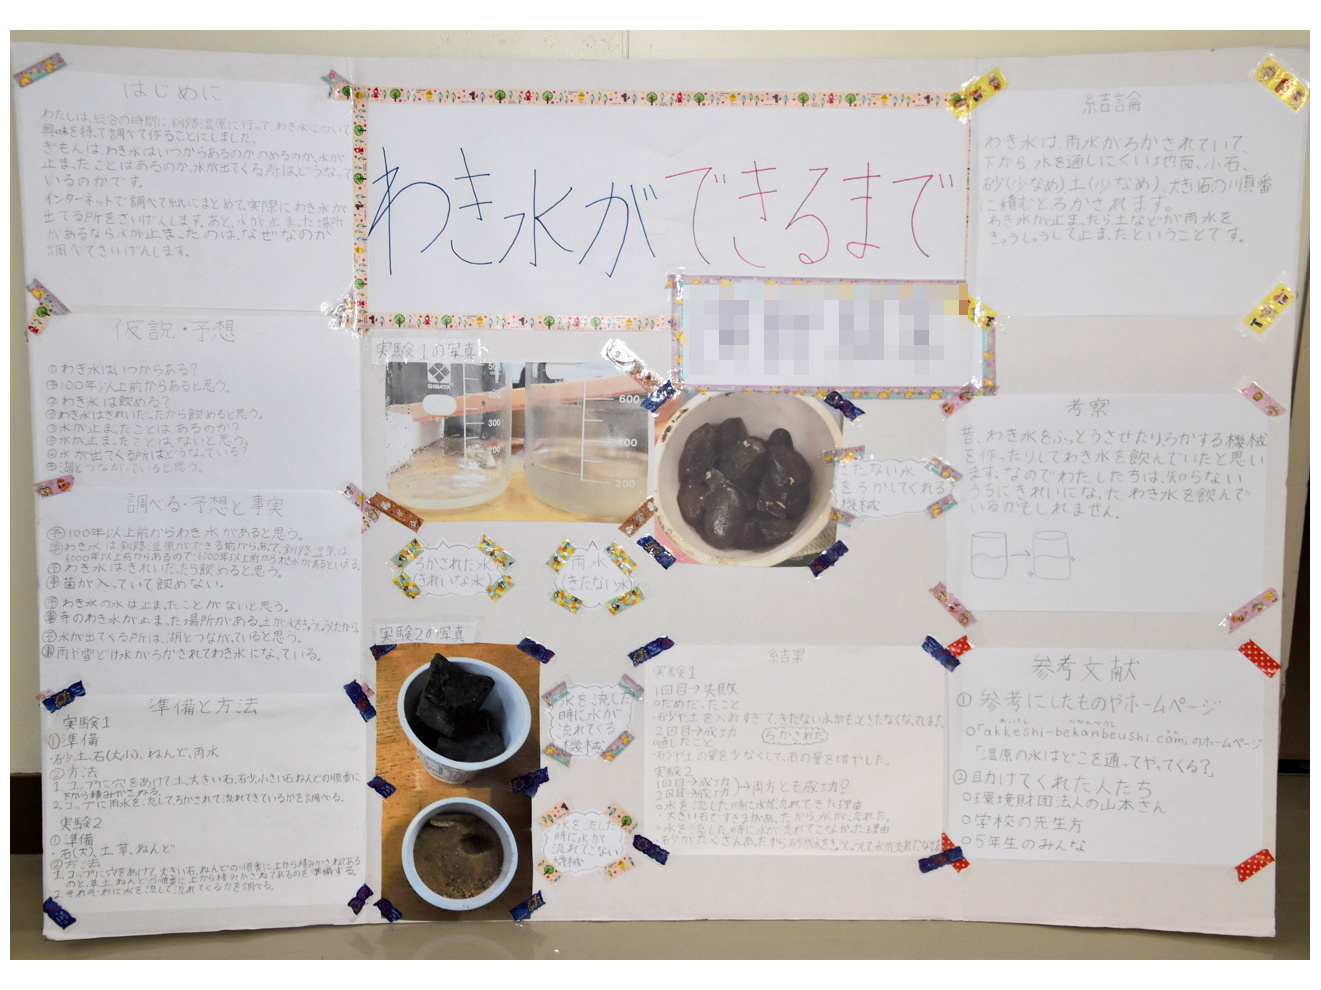 わき水ができるまで
はじめに
わたしは、総合の時間に釧路湿原に行って、わき水について
興味を持って調べて作ることにしました。
ぎもんは、わき水はいつからあるのか、のめるのか、水が
止まったことはあるのか、水が出てくる所はどうなって
いるのかです。
インターネットで調べて紙にまとめて、実際にわき水が
出てる所をさいげんします。あと、水が止まった場所
があるなら水が止まったのは、なぜなのか
調べてさいげんします。
仮説・予想
①わき水はいつからある?
100年以上前からあると思う。
②わき水は飲める?
わき水はきれいだったから飲めると思う。
③水が止まったことはあるのか?
水が止まったことはないと思う。
④水が出てくる所はどうなっている?
湖とつながっていると思う。
調べる・予想と事実
予100年以上前からわき水があると思う。
事わき水は釧路湿原ができる前からあって、釧路湿原は、
6000年以上前からあるので6000年以上前からわき水があるといえる。
予わき水はきれいだったら飲めると思う。
事菌が入っていて飲めない。
予わき水の水は止まったことがないと思う。
事寺のわき水が止まった場所がある。土が水をきゅうしゅうしたから。
予水が出てくる所は、湖とつながっていると思う。
事雨や雪どけ水がろかされてわき水になっている。
準備と方法
実験1
①準備
・砂、土、石(大小)、ねんど、雨水
②方法
1.コップに穴をあけて土、大きい石、砂、小さい石、ねんどの順番に
下から積みかさねる。
2.コップに雨水を流してろかされて流れてきているかを調べる。
実験2
①準備
石(大)、土、草、ねんど
②方法
1.コップに穴をあけて、大きい石、ねんどの順番に上から積みかさねてある
のと、草、土、ねんどの順番に上から積みかさねてあるのを準備する。
2.それぞれに水を流して流れてくるかを調べる。
実験1の写真
SIBATA
300
200
600
400
200
ろかされた水
(きれいな水)
雨水
(きたない水)
きたない水
をろかしてくれる
機械
実験2の写真
水を流した
時に水が
流れてくる
機械
水を流した
時に水が
流れてこない
機械
結果
実験1
1回目→失敗
○だめだったこと
・石少や土を入れすぎて、きたない水がもっときたなくなってしまった。
2回目→成功 ろかされた
○直したこと
・砂や土の量を少なくして、石の量を増やした。
実験2
1回目→成功
2回目→成功 →両方とも成功!
○水を流した時に水が流れてきた理由
・大きい石だとすきまがあったから、水が流れた。
○水を流した時に水が流れてこなかった理由
結論
わき水は、雨水がろかされていて、
下から、水を通しにくい地面、小石、
砂(少なめ)土(少なめ)、大きい石の順番
に積むとろかされます。
わき水が止まったら土などが雨水を
きゅうしゅうして止まったということです。
考察
昔、わき水をふっとうさせたりろかする機械
を作ったりしてわき水を飲んでいたと思い
ます。なのでわたしたちは、知らない
うちにきれいになったわき水を飲んで
いるかもしれません。
参考文献
①参考にしたものやホームページ
○「akkeshi-bekanbeushi.com」のホームページ
「湿原の水はどこを通ってやってくる?」
②助けてくれた人たち
○環境財団法人の山本さん
○学校の先生方
○5年生のみんな